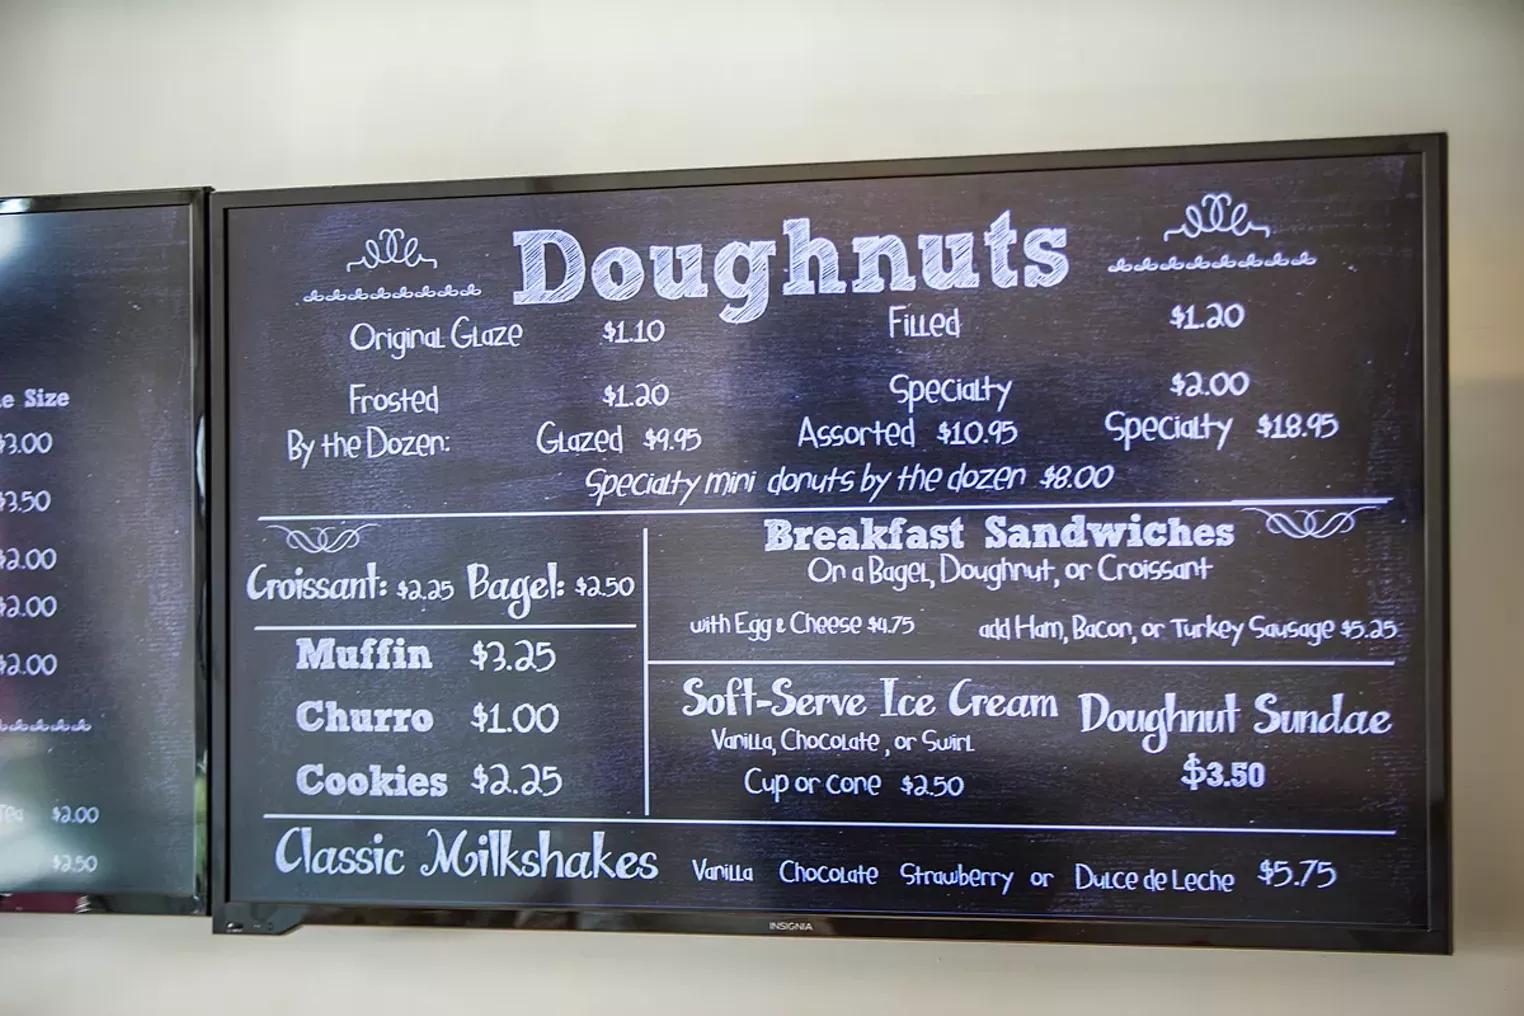 e Size
$3.00
$3.50
$2.00
$2.00
$2.00
Tea $2.00
$2.50
Doughnuts
Original Glaze $1.10 Filled $1.20
Frosted $1.20 Specialty $2.00
By the Dozen: Glazed $9.95 Assorted $10.95 Specialty $18.95
Specialty mini donuts by the dozen $8.00
Croissant: $2.25 Bagel: $2.50
Muffin $3.25
Churro $1.00
Cookies $2.25
Breakfast Sandwiches
On a Bagel, Doughnut, or Croissant
with Egg & Cheese $4.75 add Ham, Bacon, or Turkey Sausage $5.25
Soft-Serve Ice Cream
Vanilla, Chocolate, or Swirl
Cup or cone $2.50
Doughnut Sundae
$3.50
Classic Milkshakes Vanilla Chocolate Strawberry or Dulce de Leche $5.75
INSIGNIA